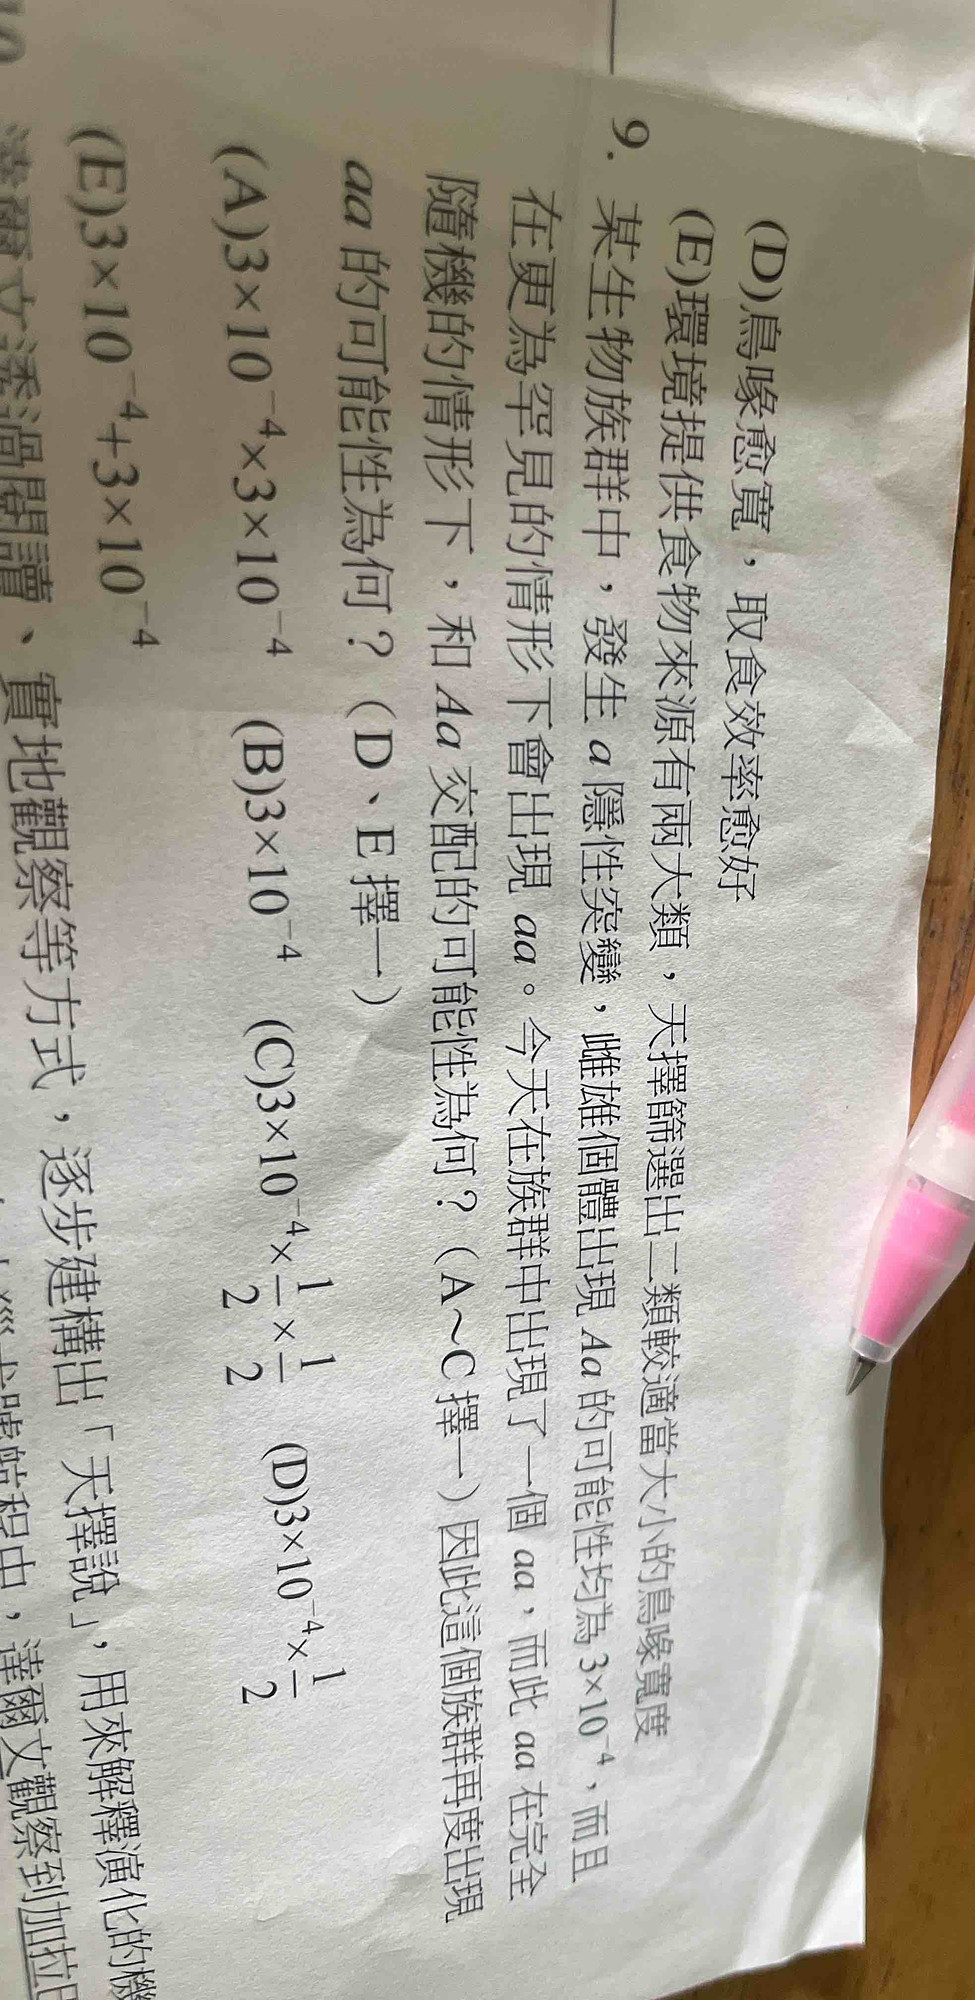 (D)鳥喙愈寬，取食效率愈好
(E)環境提供食物來源有兩大類，天擇篩選出二類較適當大小的鳥喙寬度
9. 某生物族群中，發生 a 隱性突變，雌雄個體出現 Aa 的可能性均為 3×10⁻⁴，而且
在更為罕見的情形下會出現 aa。今天在族群中出現了一個 aa，而此 aa 在完全
隨機的情形下，和 Aa 交配的可能性為何？（A～C 擇一）因此這個族群再度出現
aa 的可能性為何？（D、E 擇一）
(A)3×10⁻⁴×3×10⁻⁴ (B)3×10⁻⁴ (C)3×10⁻⁴×1/2×1/2 (D)3×10⁻⁴×1/2
(E)3×10⁻⁴+3×10⁻⁴
達爾文透過閱讀、實地觀察等方式，逐步建構出「天擇說」，用來解釋演化的機
程中，達爾文觀察到加拉巴